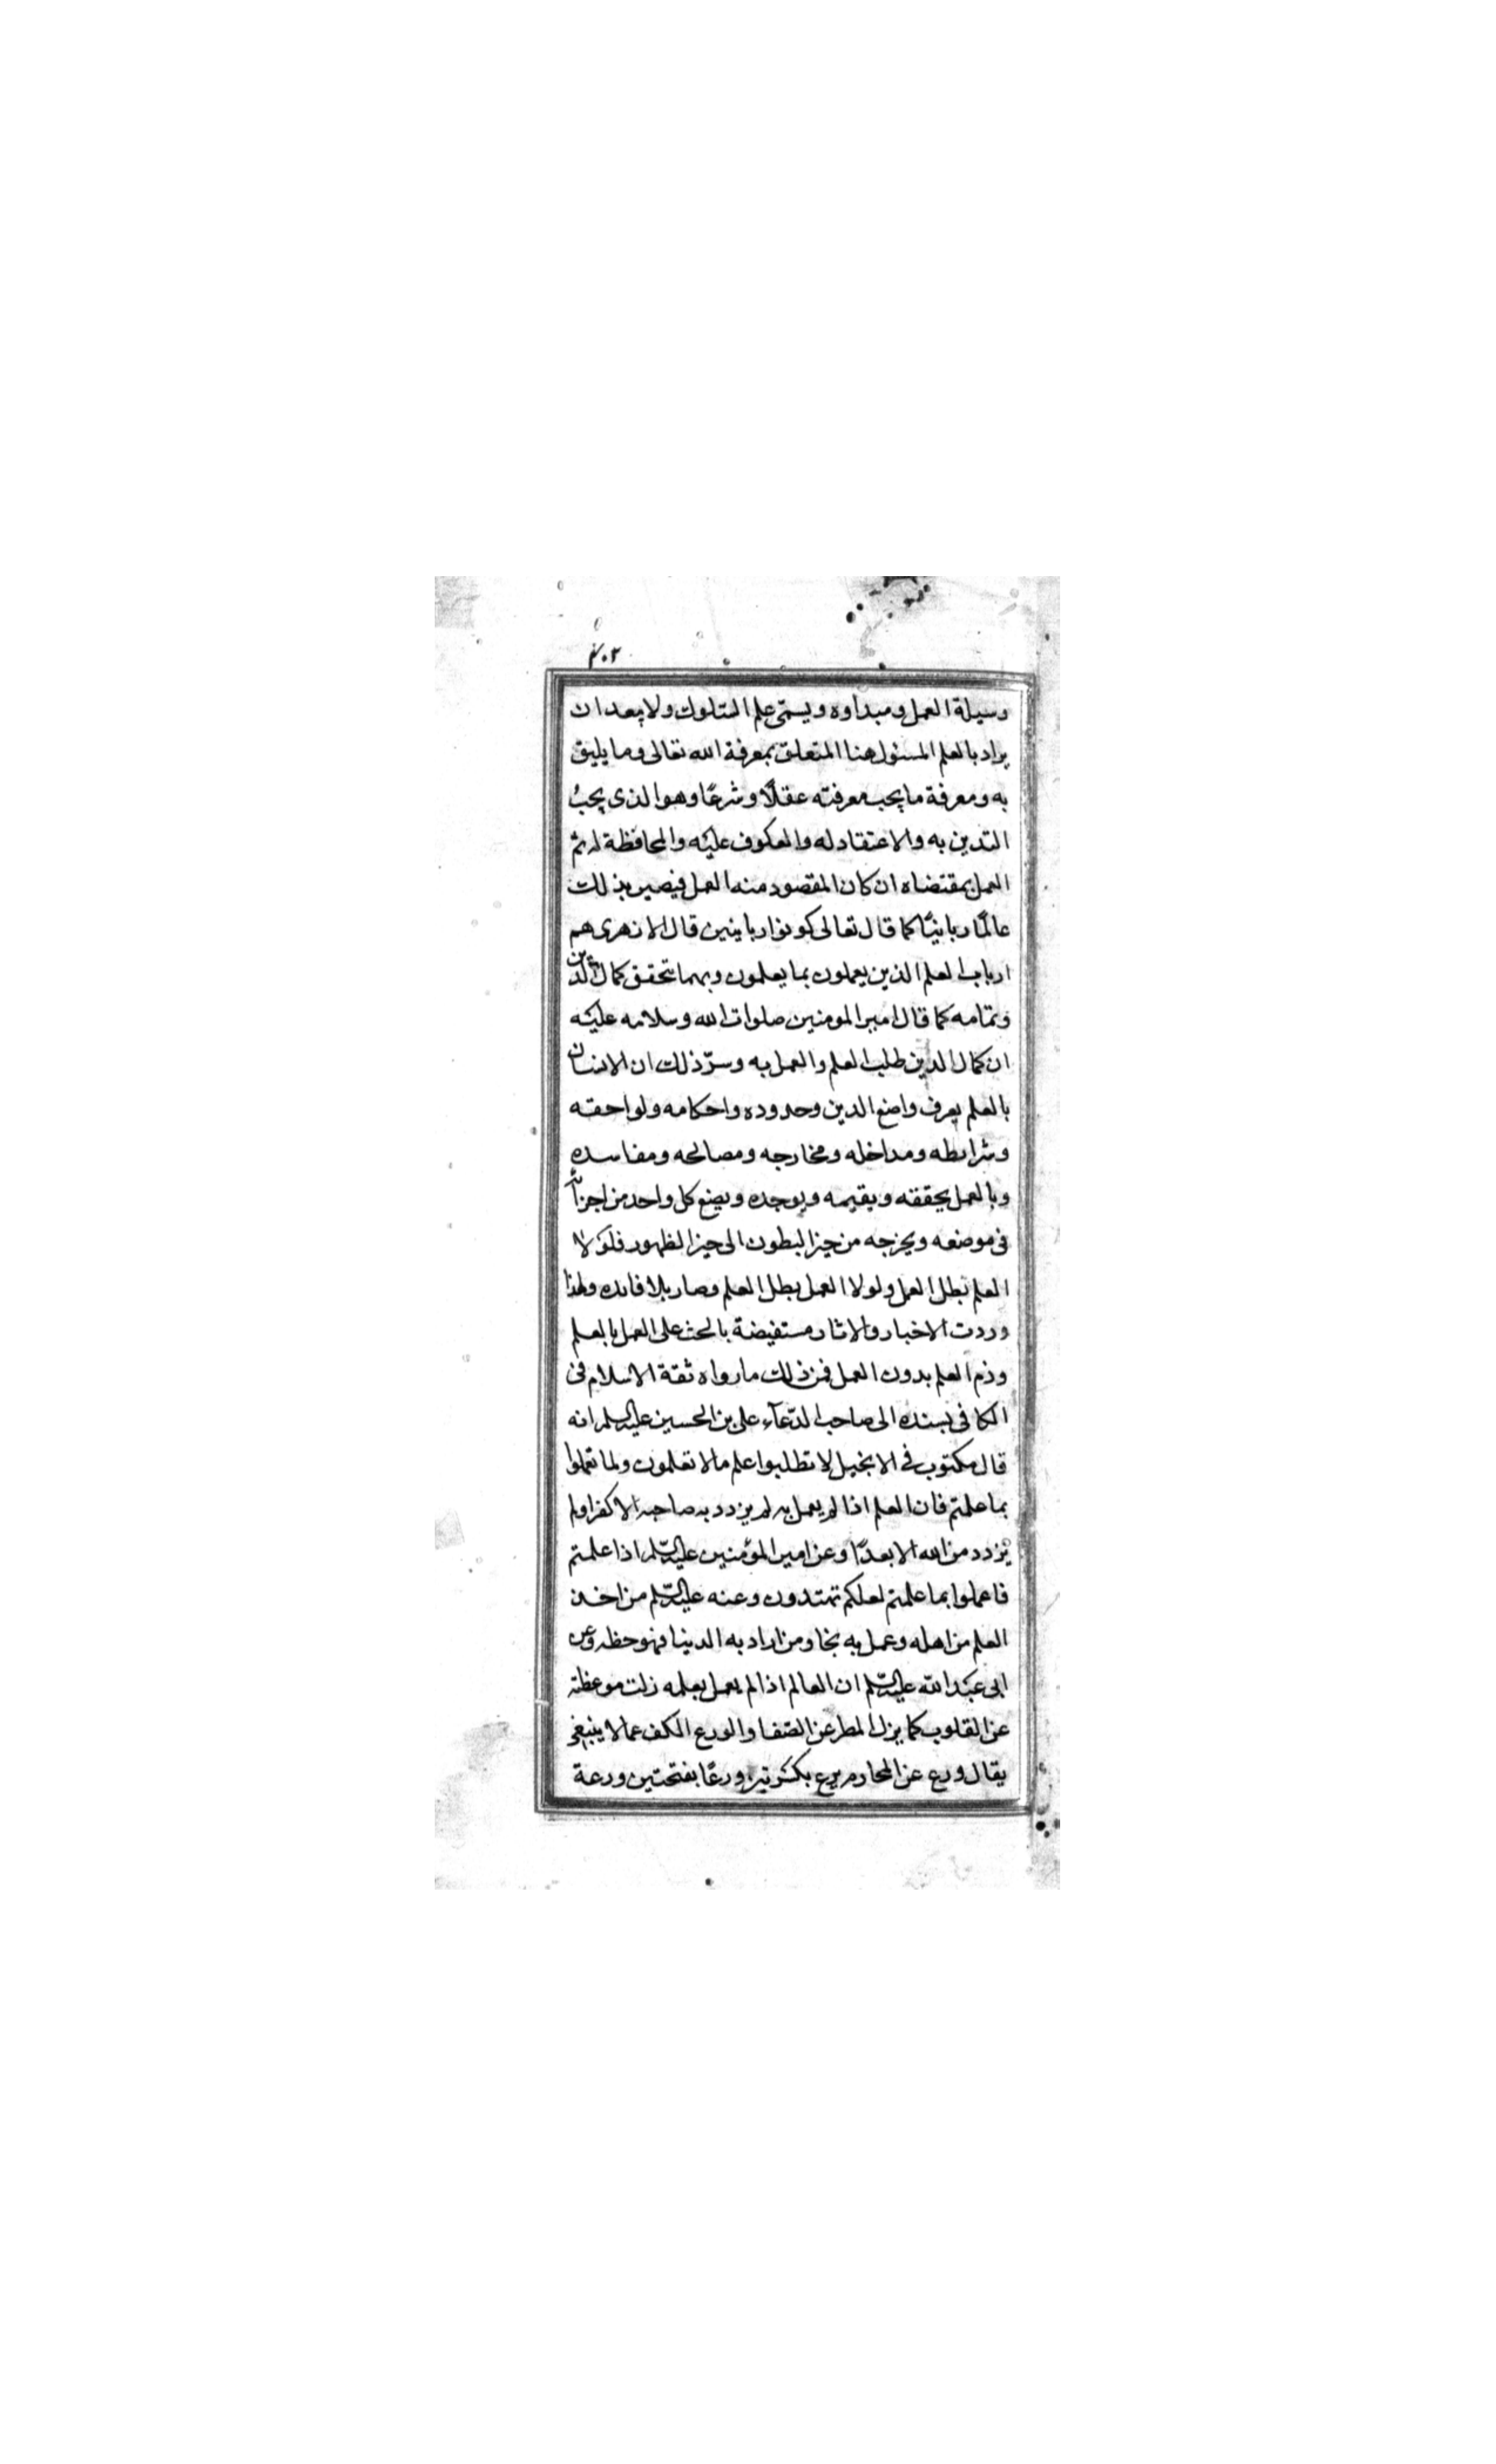 وسيلة العمل ومبداوه ويسمّى علم السّلوك ولا يبعد ان
يراد بالعلم المسئول هنا المتعلق بمعرفة الله تعالى وما يليق
به ومعرفة ما يجب معرفته عقلًا وشرعًا وهو الذى يجبُ
التدين به والاعتقاد له والعكوف عليه والمحافظة له ثم
العمل بمقتضاه ان كان المقصود منه العمل فيصير بذلك
عالمًا ربانيًا كما قال تعالى كونوا ربانيين قال الازهرى هم
ارباب العلم الذين يعملون بما يعلمون وبهما تحقق كمال الدّين
وتمامه كما قال امير المومنين صلوات الله وسلامه عليه
ان كمال الدين طلب العلم والعمل به وسرّ ذلك ان الانسان
بالعلم يعرف واضع الدين وحدوده واحكامه ولواحقه
وشرايطه ومداخله ومخارجه ومصالحه ومفاسده
وبالعمل يحققه ويقيمه ويوجده ويضع كل واحد من اجزائه
فى موضعه ويخرجه من حيز البطون الى حيز الظهور فلولا
العلم بطل العمل ولولا العمل بطل العلم وصار بلا فائده ولهذا
وردت الاخبار والاثار مستفيضة بالحث على العمل بالعلم
وذم العلم بدون العمل فمن ذلك ما رواه ثقة الاسلام فى
الكافى بسنده الى صاحب الدّعاء على بن الحسين عليه السلم انه
قال مكتوب فى الانجيل لا تطلبوا علم ما لا تعلمون ولما تعملوا
بما علمتم فان العلم اذا لم يعمل به لم يزدد به صاحبه الا كفرا ولم
يزدد من الله الا بعدًا وعن امير المؤمنين عليه السّلم اذا علمتم
فاعملوا بما علمتم لعلكم تهتدون وعنه عليه السّلم من اخذ
العلم من اهله وعمل به نجا ومن اراد به الدنيا فهو حظه وعن
ابى عبد الله عليه السّلم ان العالم اذا لم يعمل بعلمه زلت موعظته
عن القلوب كما يزل المطر عن الصّفا والورع الكف عما لا ينبغى
يقال ورع عن المحارم يرع بكسرتين ورعًا بفتحتين ورعة